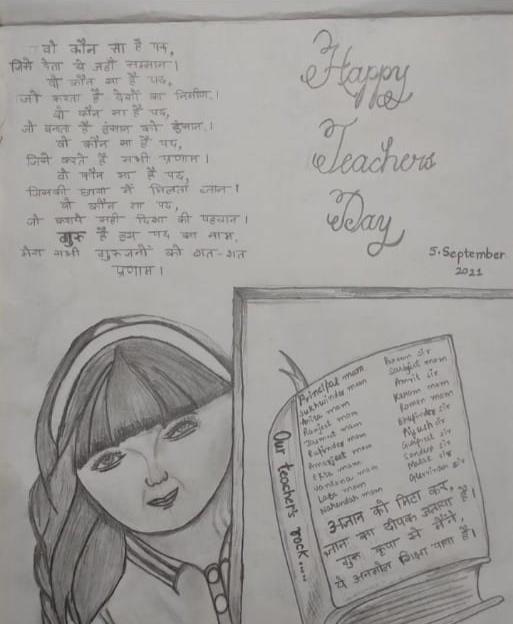 वो कौन सा है पद,
जिसे देता ये जहाँ सम्मान।
वो कौन सा है पद,
जो करता है देशों का निर्माण।
वो कौन सा है पद,
जो बनाता है इंसान को इंसान।
वो कौन सा है पद,
जिसे करते है सभी प्रणाम।
वो कौन सा है पद,
जिसकी छाया में मिलता ज्ञान।
वो कौन सा पद,
जो कराये सही दिशा की पहचान।
गुरू है इस पद का नाम,
मेरा सभी गुरूजनों को शत-शत
प्रणाम।
Happy
Teachers
Day
5. September
2021
Our teacher's rock....
Principal mam
Sukhwinder mam
Anita mam
Ranjeet mam
Rajinder mam
Amarjeet mam
Ekta mam
Vandana mam
Lata mam
Sarbjeet mam
Amrit sir
Karam mam
Raman mam
Bhupinder sir
Piyush sir
Gurpreet sir
Sandeep sir
अज्ञान को मिटा कर,
ज्ञान का दीपक जलाया है,
गुरू कृपा से मैंने,
ये अनमोल शिक्षा पाया है।